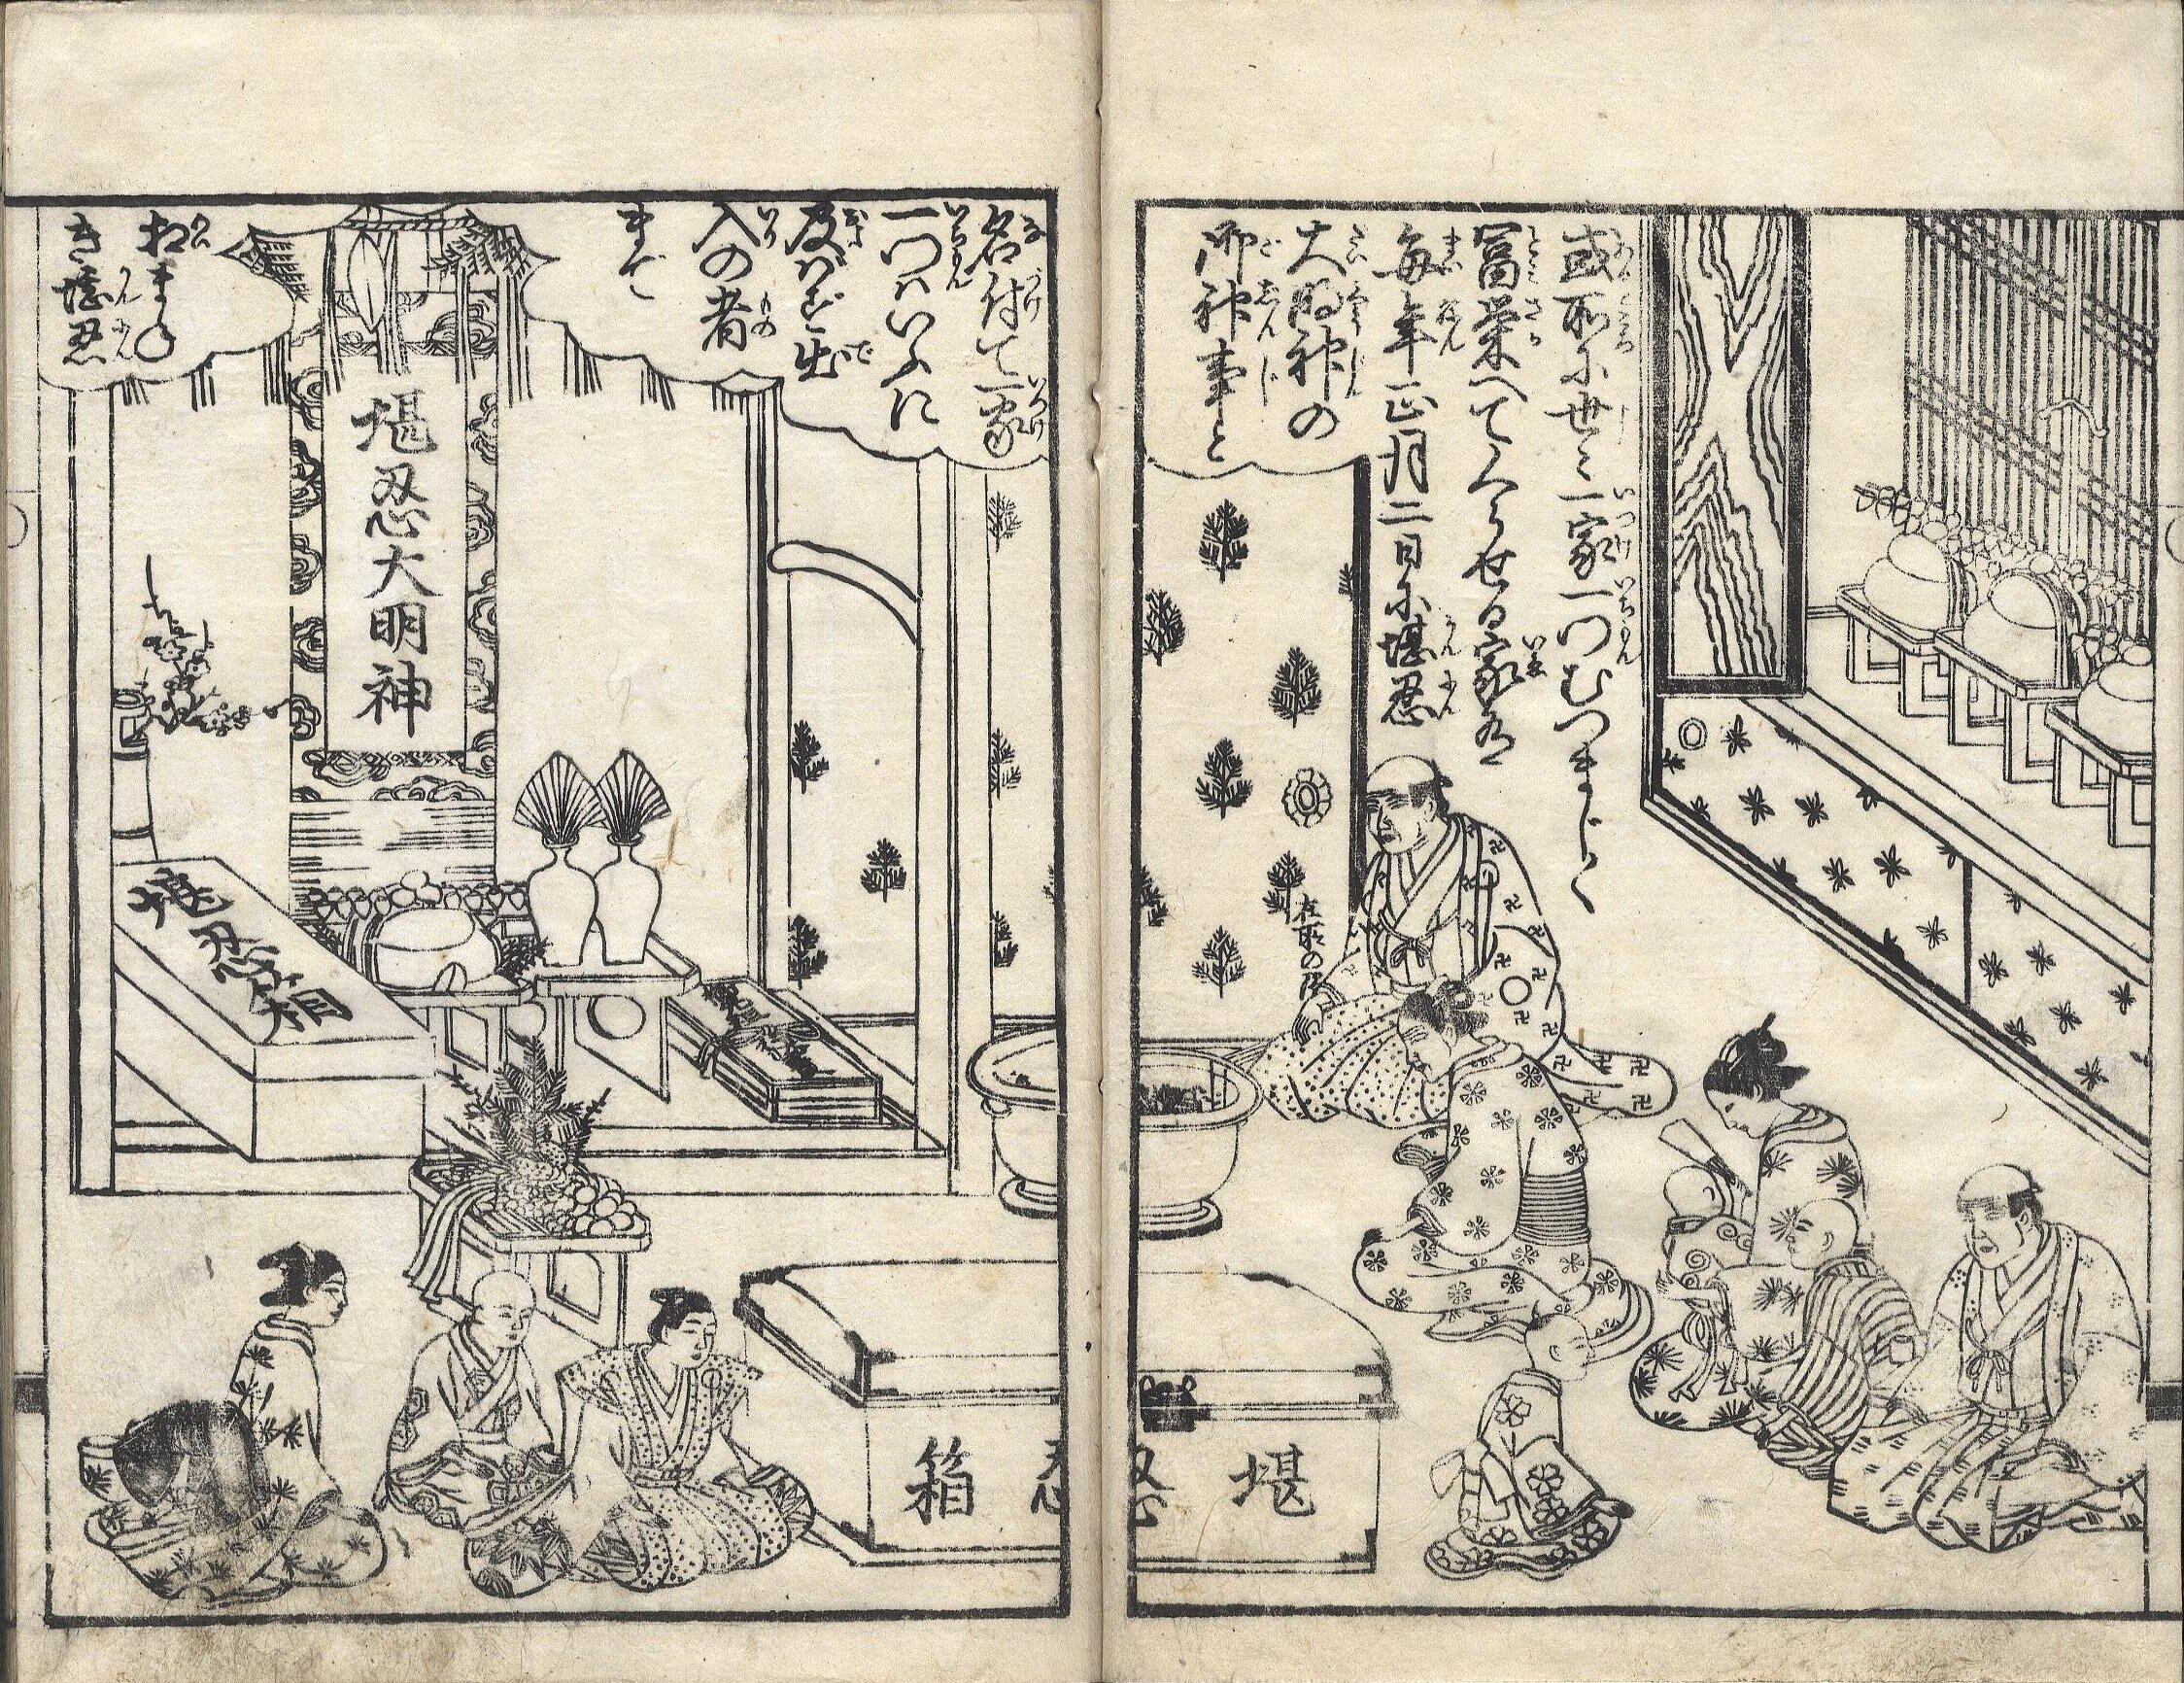 或所に世々一家一門むつましく
冨栄へてくらせる家有
毎年正月二日に堪忍
大明神の
御神事と
名付て一家
一門はいふに
及ばず出
入の者
まで
招まね
き堪忍
堪忍大明神
堪忍箱
堪忍箱